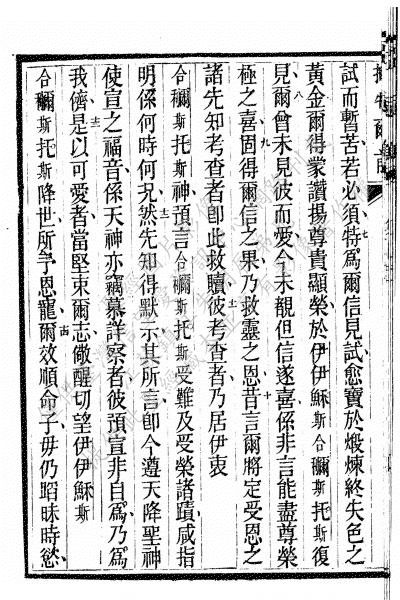 試而暫苦若必須、特爲爾信見試愈寶於煆煉終失色之
黃金爾得蒙讚揚尊貴顯榮於伊伊穌斯合彌斯托斯復
見、八爾曾未見彼而愛今未覩但信遂喜係非言能盡尊榮
極之喜、九固得爾信之果乃救靈之恩、十昔言爾將定受恩之
諸先知考查者卽此救贖、十一彼考查者乃居伊衷
合彌斯托斯神預言合彌斯托斯受難及受榮諸蹟咸指
明係何時何况、十二然先知得默示、其所言卽今遵天降聖神
使宣之福音係天神亦竊慕詳察者彼預宣非自爲乃爲
我儕、十三是以可愛者當堅束爾志儆醒切望伊伊穌斯
合彌斯托斯降世所予恩寵、十四爾效順命子毋仍蹈昧時慾、